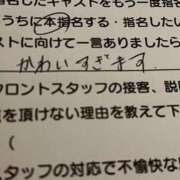 したキャストをもう一度指名
うちに本指名する・指名したい
ストに向けて一言ありましたら
かわいすぎます
フロントスタッフの接客、説
を頂けない理由を教えて下
(
スタッフの対応で不愉快な